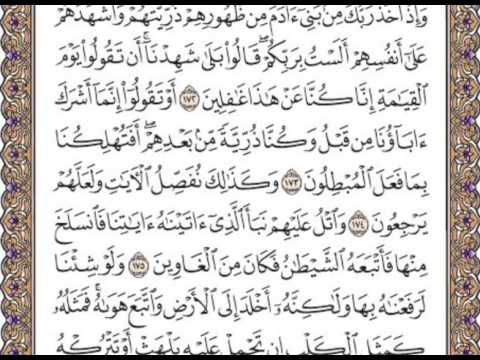 وَإِذْ أَخَذَ رَبُّكَ مِنۢ بَنِىٓ ءَادَمَ مِن ظُهُورِهِمْ ذُرِّيَّتَهُمْ وَأَشْهَدَهُمْ
عَلَىٰٓ أَنفُسِهِمْ أَلَسْتُ بِرَبِّكُمْ ۖ قَالُوا۟ بَلَىٰ ۛ شَهِدْنَآ ۛ أَن تَقُولُوا۟ يَوْمَ
ٱلْقِيَٰمَةِ إِنَّا كُنَّا عَنْ هَٰذَا غَٰفِلِينَ ١٧٢ أَوْ تَقُولُوٓا۟ إِنَّمَآ أَشْرَكَ
ءَابَآؤُنَا مِن قَبْلُ وَكُنَّا ذُرِّيَّةً مِّنۢ بَعْدِهِمْ ۖ أَفَتُهْلِكُنَا
بِمَا فَعَلَ ٱلْمُبْطِلُونَ ١٧٣ وَكَذَٰلِكَ نُفَصِّلُ ٱلْءَايَٰتِ وَلَعَلَّهُمْ
يَرْجِعُونَ ١٧٤ وَٱتْلُ عَلَيْهِمْ نَبَأَ ٱلَّذِىٓ ءَاتَيْنَٰهُ ءَايَٰتِنَا فَٱنسَلَخَ
مِنْهَا فَأَتْبَعَهُ ٱلشَّيْطَٰنُ فَكَانَ مِنَ ٱلْغَاوِينَ ١٧٥ وَلَوْ شِئْنَا
لَرَفَعْنَٰهُ بِهَا وَلَٰكِنَّهُۥٓ أَخْلَدَ إِلَى ٱلْأَرْضِ وَٱتَّبَعَ هَوَىٰهُ ۚ فَمَثَلُهُۥ
كَمَثَلِ ٱلْكَلْبِ إِن تَحْمِلْ عَلَيْهِ يَلْهَثْ أَوْ تَتْرُكْهُ